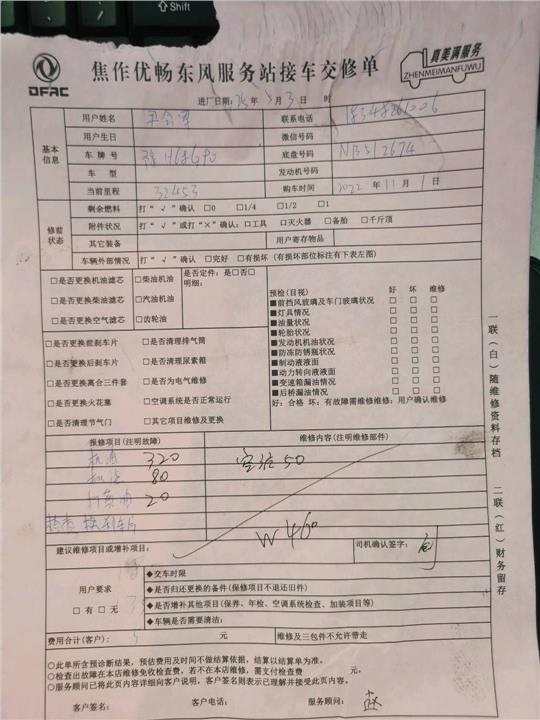 Shift
DFAC
焦作优畅东风服务站接车交修单
真美满服务
ZHENMEIMANFUWU
进厂日期: 年 月 3 日 时
用户姓名
联系电话
用户生日
微信号码
基本信息
车 牌 号
底盘号码 NB512674
车 型
发动机号码
当前里程 32453
购车时间 2022 年 11 月 1 日
修前状态
剩余燃料 打“√”确认 □0 □1/4 □1/2 □1
附件状况 打“√”或打“×”确认:□工具 □灭火器 □备胎 □千斤顶
其它装备
用户寄存物品
车辆外部情况 打“√”确认 □完好 □有损坏(有损坏部位标注有下表左图)
□是否更换机油滤芯 □柴油机油
□是否更换柴油滤芯 □汽油机油
□是否更换空气滤芯 □齿轮油
是否定件:是□否□
明细:
□是否更换前刹车片 □是否清理排气筒
□是否更换后刹车片 □是否清理尿素箱
□是否更换离合三件套 □是否为电气维修
□是否更换火花塞 □空调系统是否正常运行
□是否清理节气门 □其它项目维修及更换
预检(目视) 好 坏 维修
■前挡风玻璃及车门玻璃状况 □ □ □
■灯具情况 □ □ □
■油量状况 □ □ □
■轮胎状况 □ □ □
■发动机机油状况 □ □ □
■防冻防锈瓶状况 □ □ □
■制动液液面 □ □ □
■动力转向液液面 □ □ □
■变速箱漏油情况 □ □ □
■后桥漏油情况 □ □ □
好:合格 坏:有故障需维修维修:用户确认维修
报修项目(注明故障)
维修内容(注明维修部件)
机油 320
定位 50
80
20
检查
W 460
建议维修项目或增补项目:
司机确认签字:
用户要求
□有□无
◆交车时限
◆是否归还更换的备件(保修项目不退还旧件)
◆是否增补其他项目(保养、年检、空调系统检查、加装项目等)
◆车辆是否需要清洁:
费用合计(客户): 元
维修及三包件不允许带走
○此单所含预诊断结果,预估费用及时间不做结算依据,结算以结算单为准。
○检查出故障在本店维修免收检查费,若不在本店维修,需支付检查费 元。
○服务顾问已将此页内容详细向客户说明,客户签名则表示已理解并接受此页内容。
客户签名:
客户电话:
服务顾问:
一联(白)随维修资料存档
二联(红)财务留存